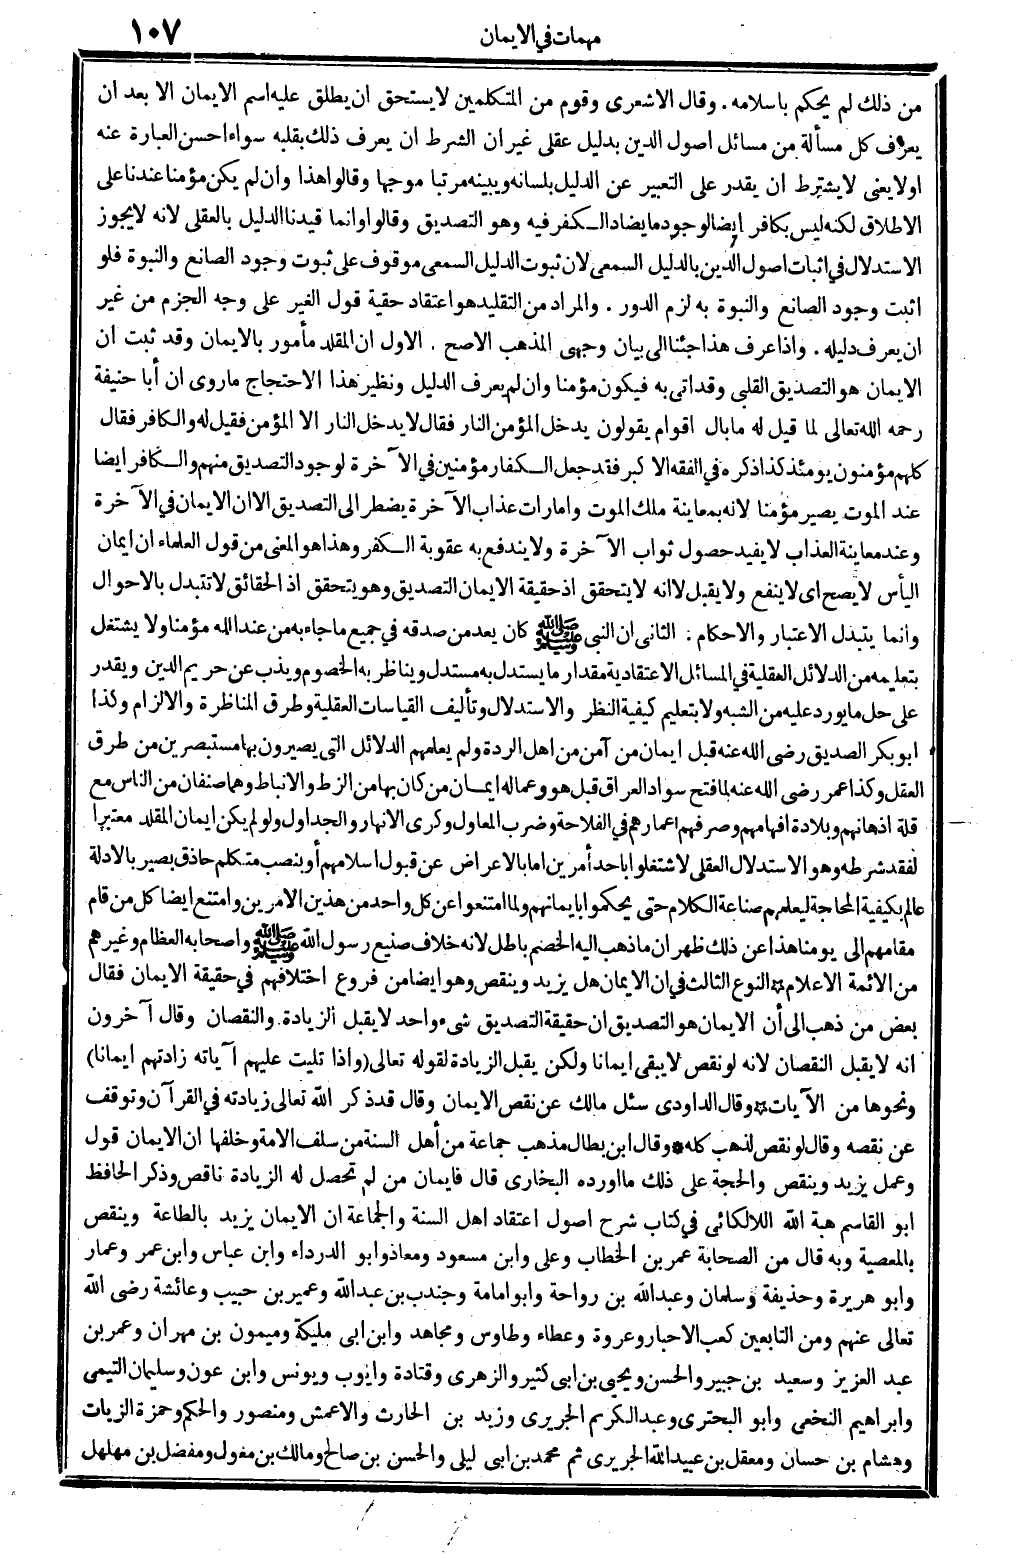 مهمات في الايمان
١٠٧
من ذلك لم يحكم باسلامه . وقال الاشعرى وقوم من المتكلمين لا يستحق ان يطلق عليه اسم الايمان الا بعد ان
يعرف كل مسألة من مسائل اصول الدين بدليل عقلى غير ان الشرط ان يعرف ذلك بقلبه سواء احسن العبارة عنه
اولا يعنى لا يشترط ان يقدر على التعبير عن الدليل بلسانه ويبينه مرتبا موجها وقالوا هذا وان لم يكن مؤمنا عندنا على
الاطلاق لكنه ليس بكافر ايضا لوجود ما يضاد الكفر فيه وهو التصديق وقالوا وانما قيدنا الدليل بالعقلى لانه لا يجوز
الاستدلال في اثبات اصول الدين بالدليل السمعى لان ثبوت الدليل السمعى موقوف على ثبوت وجود الصانع والنبوة فلو
اثبت وجود الصانع والنبوة به لزم الدور . والمراد من التقليد هو اعتقاد حقية قول الغير على وجه الجزم من غير
ان يعرف دليله . واذا عرف هذا جئنا الى بيان وجهى المذهب الاصح . الاول ان المقلد مأمور بالايمان وقد ثبت ان
الايمان هو التصديق القلبى وقد اتى به فيكون مؤمنا وان لم يعرف الدليل ونظير هذا الاحتجاج ماروى ان أبا حنيفة
رحمه الله تعالى لما قيل له ما بال اقوام يقولون يدخل المؤمن النار فقال لا يدخل النار الا المؤمن فقيل له والكافر فقال
كلهم مؤمنون يومئذ كذا ذكره في الفقه الاكبر فقد جعل الكفار مؤمنين في الآخرة لوجود التصديق منهم والكافر ايضا
عند الموت يصير مؤمنا لانه بمعاينة ملك الموت وامارات عذاب الآخرة يضطر الى التصديق الا ان الايمان في الآخرة
وعند معاينة العذاب لا يفيد حصول ثواب الآخرة ولا يندفع به عقوبة الكفر وهذا هو المعنى من قول العلماء ان ايمان
اليأس لا يصح اى لا ينفع ولا يقبل لا انه لا يتحقق اذ حقيقة الايمان التصديق وهو يتحقق اذ الحقائق لا تتبدل بالاحوال
وانما يتبدل الاعتبار والاحكام : الثانى ان النبى ﷺ كان يعد من صدقه في جميع ما جاء به من عند الله مؤمنا ولا يشتغل
بتعليمه من الدلائل العقلية في المسائل الاعتقادية مقدار ما يستدل به مستدل ويناظر به الخصوم ويذب عن حريم الدين ويقدر
على حل ما يورد عليه من الشبه ولا بتعليم كيفية النظر والاستدلال وتأليف القياسات العقلية وطرق المناظرة والالزام وكذا
ابو بكر الصديق رضى الله عنه قبل ايمان من آمن من اهل الردة ولم يعلمهم الدلائل التى يصيرون بها مستبصرين من طرق
العقل وكذا عمر رضى الله عنه لما فتح سواد العراق قبل هو وعماله ايمان من كان بها من الزط والانباط وهما صنفان من الناس مع
قلة اذهانهم وبلادة افهامهم وصرفهم اعمارهم في الفلاحة وضرب المعاول وكرى الانهار والجداول ولو لم يكن ايمان المقلد معتبرا
لفقد شرطه وهو الاستدلال العقلى لاشتغلوا باحد أمرين اما بالاعراض عن قبول اسلامهم أو بنصب متكلم حاذق بصير بالادلة
عالم بكيفية المحاجة ليعلمهم صناعة الكلام حتى يحكموا بايمانهم ولما امتنعوا عن كل واحد من هذين الامرين وامتنع ايضا كل من قام
مقامهم الى يومنا هذا عن ذلك ظهر ان ما ذهب اليه الخصم باطل لانه خلاف صنيع رسول الله ﷺ واصحابه العظام وغيرهم
من الائمة الاعلام * النوع الثالث في ان الايمان هل يزيد وينقص وهو ايضا من فروع اختلافهم في حقيقة الايمان فقال
بعض من ذهب الى أن الايمان هو التصديق ان حقيقة التصديق شىء واحد لا يقبل الزيادة والنقصان وقال آخرون
انه لا يقبل النقصان لانه لو نقص لا يبقى ايمانا ولكن يقبل الزيادة لقوله تعالى (واذا تليت عليهم آياته زادتهم ايمانا)
ونحوها من الآيات * وقال الداودى سئل مالك عن نقص الايمان وقال قد ذكر الله تعالى زيادته في القرآن وتوقف
عن نقصه وقال لو نقص لذهب كله * وقال ابن بطال مذهب جماعة من أهل السنة من سلف الامة وخلفها ان الايمان قول
وعمل يزيد وينقص والحجة على ذلك ما اورده البخارى قال فايمان من لم تحصل له الزيادة ناقص وذكر الحافظ
ابو القاسم هبة الله اللالكائى في كتاب شرح اصول اعتقاد اهل السنة والجماعة ان الايمان يزيد بالطاعة وينقص
بالمعصية وبه قال من الصحابة عمر بن الخطاب وعلى وابن مسعود ومعاذ وابو الدرداء وابن عباس وابن عمر وعمار
وابو هريرة وحذيفة وسلمان وعبدالله بن رواحة وابو امامة وجندب بن عبدالله وعمير بن حبيب وعائشة رضى الله
تعالى عنهم ومن التابعين كعب الاحبار وعروة وعطاء وطاوس ومجاهد وابن ابى مليكة وميمون بن مهران وعمر بن
عبد العزيز وسعيد بن جبير والحسن ويحيى بن ابى كثير والزهرى وقتادة وايوب ويونس وابن عون وسليمان التيمى
وابراهيم النخعى وابو البحترى وعبد الكريم الجريرى وزيد بن الحارث والاعمش ومنصور والحكم وحمزة الزيات
وهشام بن حسان ومعقل بن عبيد الله الجريرى ثم محمد بن ابى ليلى والحسن بن صالح ومالك بن مغول ومفضل بن مهلهل